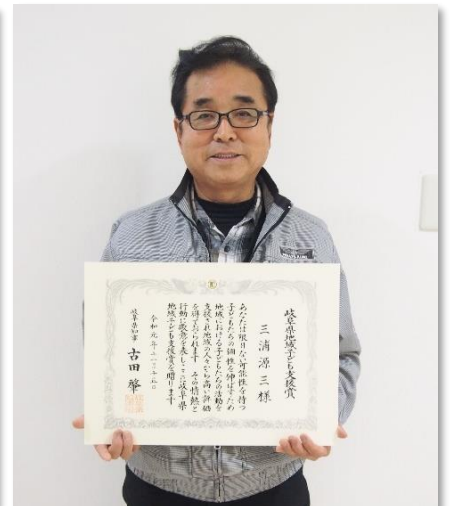 岐阜県地域子ども支援賞
三浦源三様
あなたは限りない可能性を持つ
子どもたちの個性を伸ばすため
地域における子どもたちの活動を
支援され地域の人々から高い評価
を得ておられます その情熱と
行動に敬意を表しここに岐阜県
地域子ども支援賞を贈ります
岐阜県知事 古田 肇